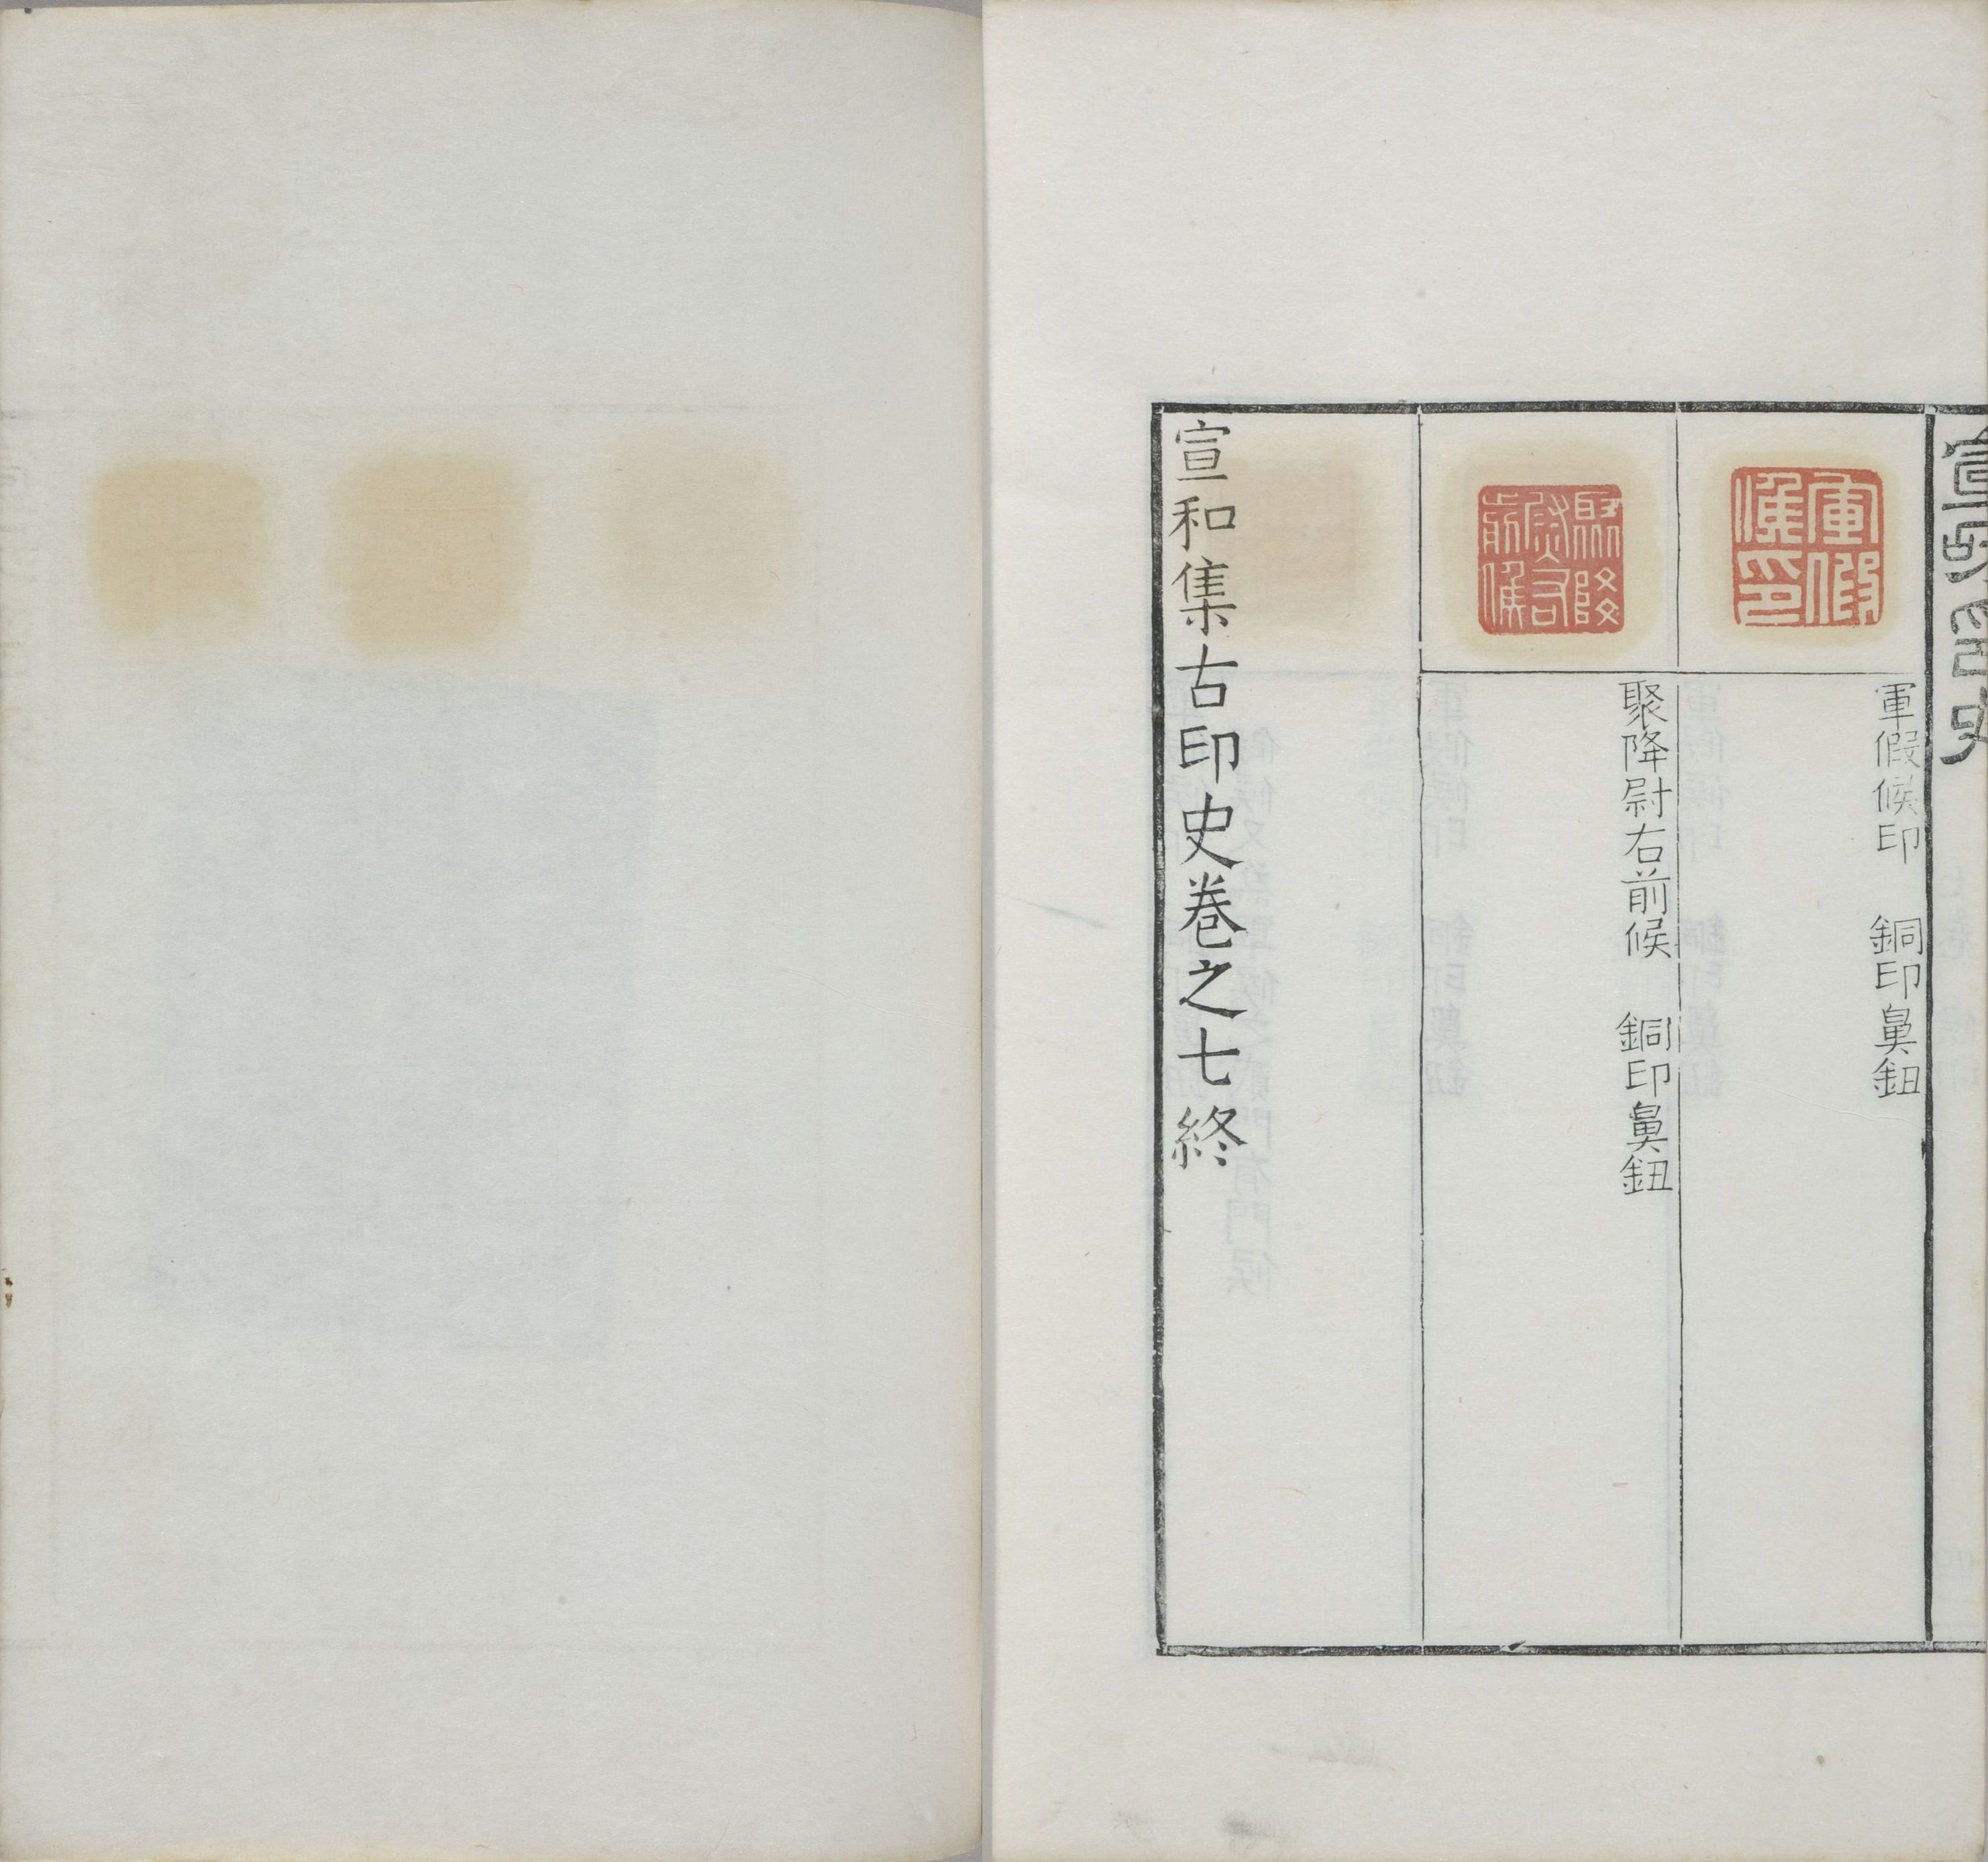 宣和印史
軍假候印
軍假候印　銅印鼻鈕
聚降尉右前候
聚降尉右前候　銅印鼻鈕
宣和集古印史卷之七終